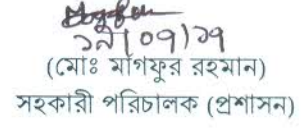 ১৯/০৭/১৭
(মোঃ মাগফুর রহমান)
সহকারী পরিচালক (প্রশাসন)